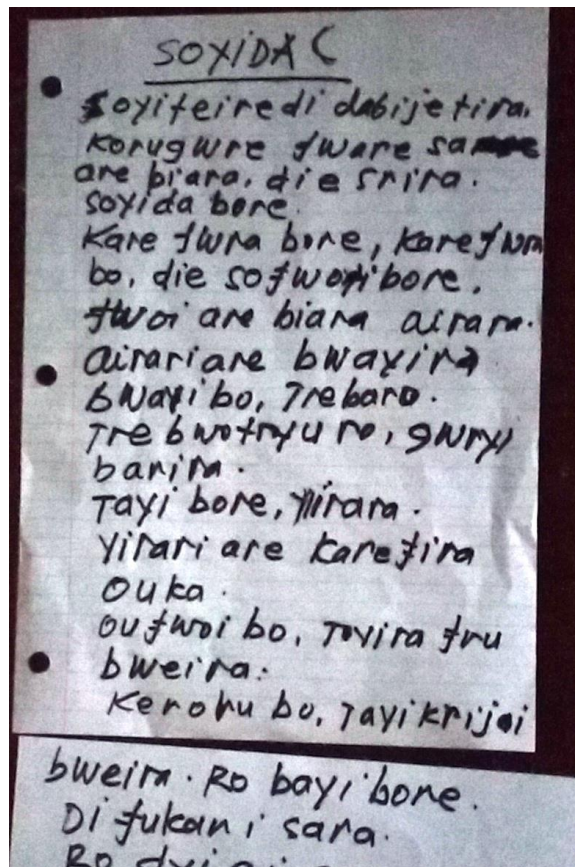 SOYIDA C
Soyifeiredi dabijetira.
Korugwre fware
are biara. die srira.
Soyida bore.
Kare fwra bore, Kare fwra
bo, die bore.
fwoi are biara airara.
Airari are bwayira
bwayi bo, Trebaro.
Tre gwryi
barira.
Tayi bore, Yirara.
Yirari are Karefira
Ouka.
Oufwoi bo, Toyira fru
bweira.
Keroru bo, Tayi krijoi
bweira. Ro bayi bore.
Di fukan i sara.
Ro